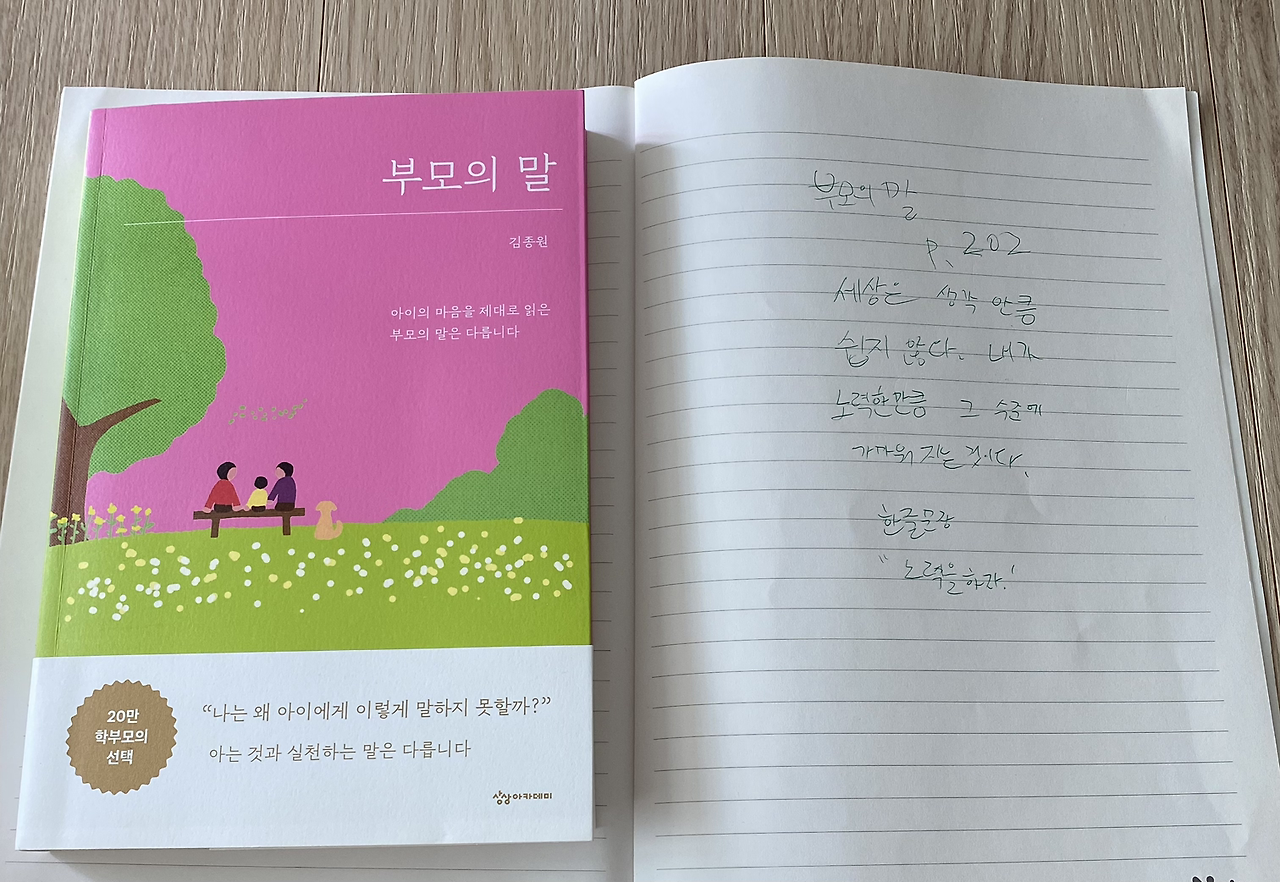 부모의 말
김종원
아이의 마음을 제대로 읽은
부모의 말은 다릅니다
20만
학부모의
선택
“나는 왜 아이에게 이렇게 말하지 못할까?”
아는 것과 실천하는 말은 다릅니다
상상아카데미
부모의 말
p. 202
세상은 생각 만큼
쉽지 않다. 내가
노력한만큼 그 수준에
가까워 지는 것이다.
한글문장
"노력을하라!